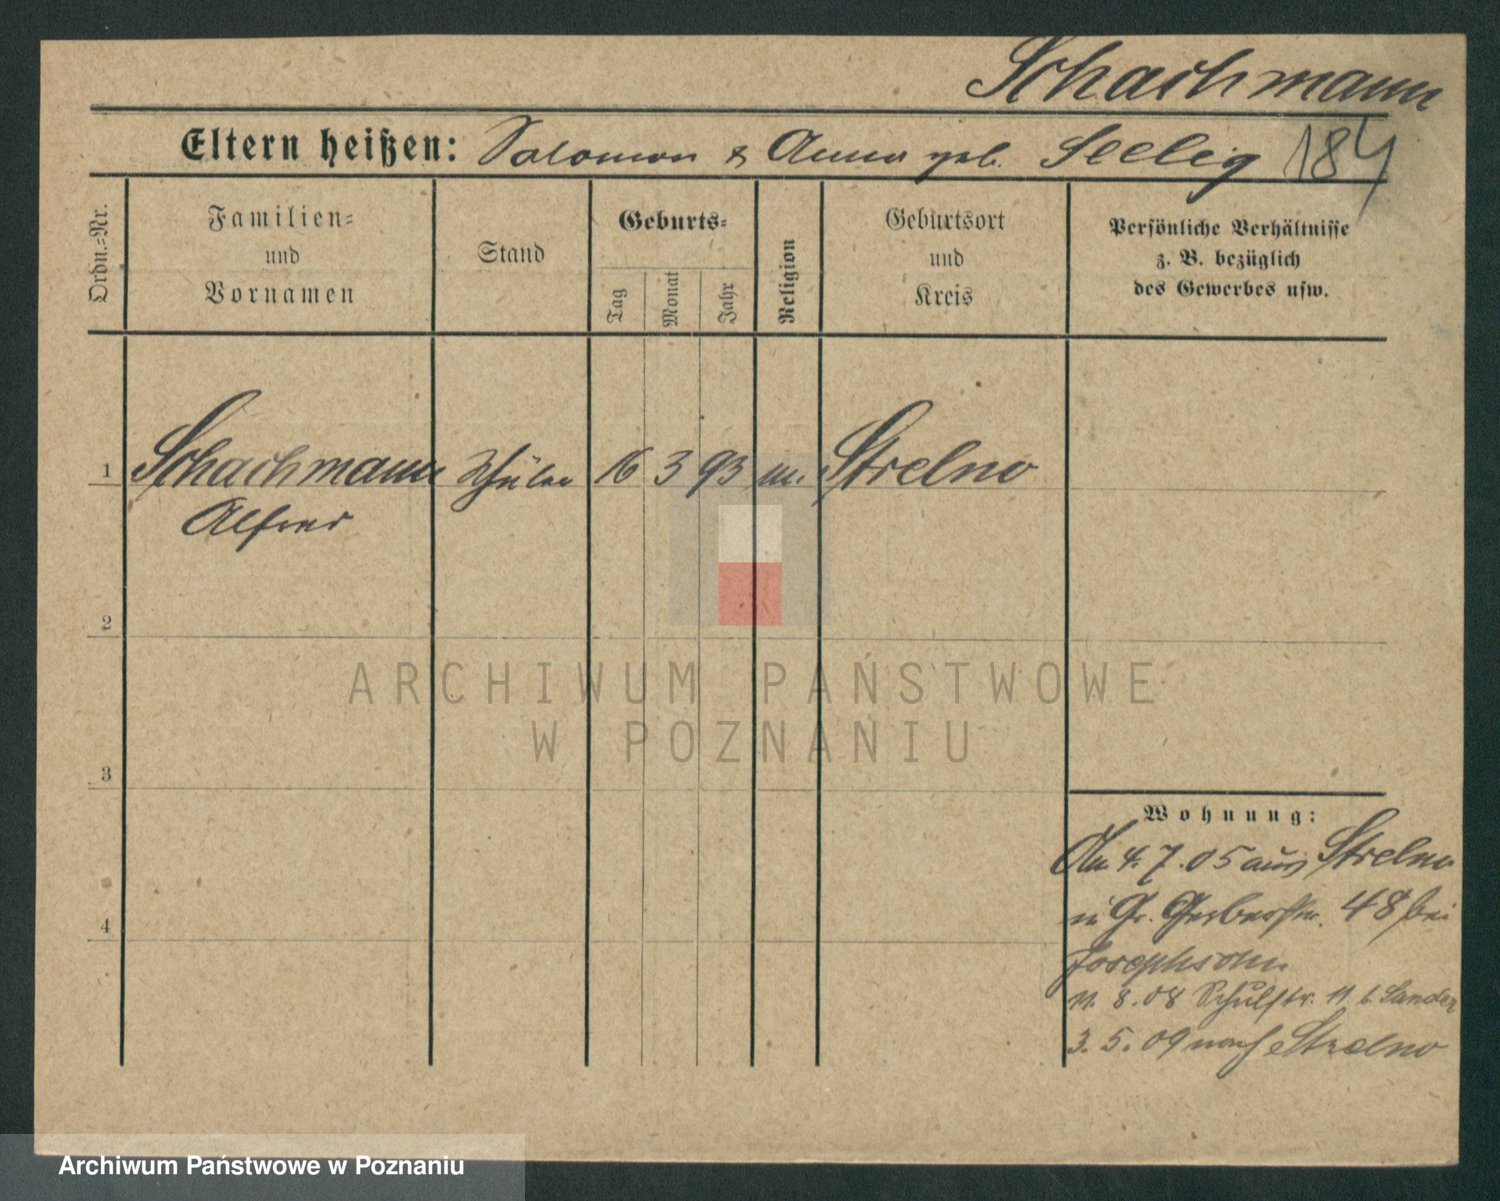 Schachmann
Eltern heißen: Salomon & Anna geb. Seelig 184
Ordn.=Nr.
Familien=
und
Vornamen
Stand
Geburts=
Tag
Monat
Jahr
Religion
Geburtsort
und
Kreis
Persönliche Verhältnisse
z. B. bezüglich
des Gewerbes usw.
1 Schachmann Schüler 16 3 93 m. Strelno
Alfred
2
3
4
Wohnung:
4. 7. 05 aus Strelno
in Gr. Gerberstr. 48 bei
Josephsohn
11. 8. 08 Schulstr. 11 b. Sander
3. 5. 09 nach Strelno
ARCHIWUM PAŃSTWOWE
W POZNANIU
Archiwum Państwowe w Poznaniu